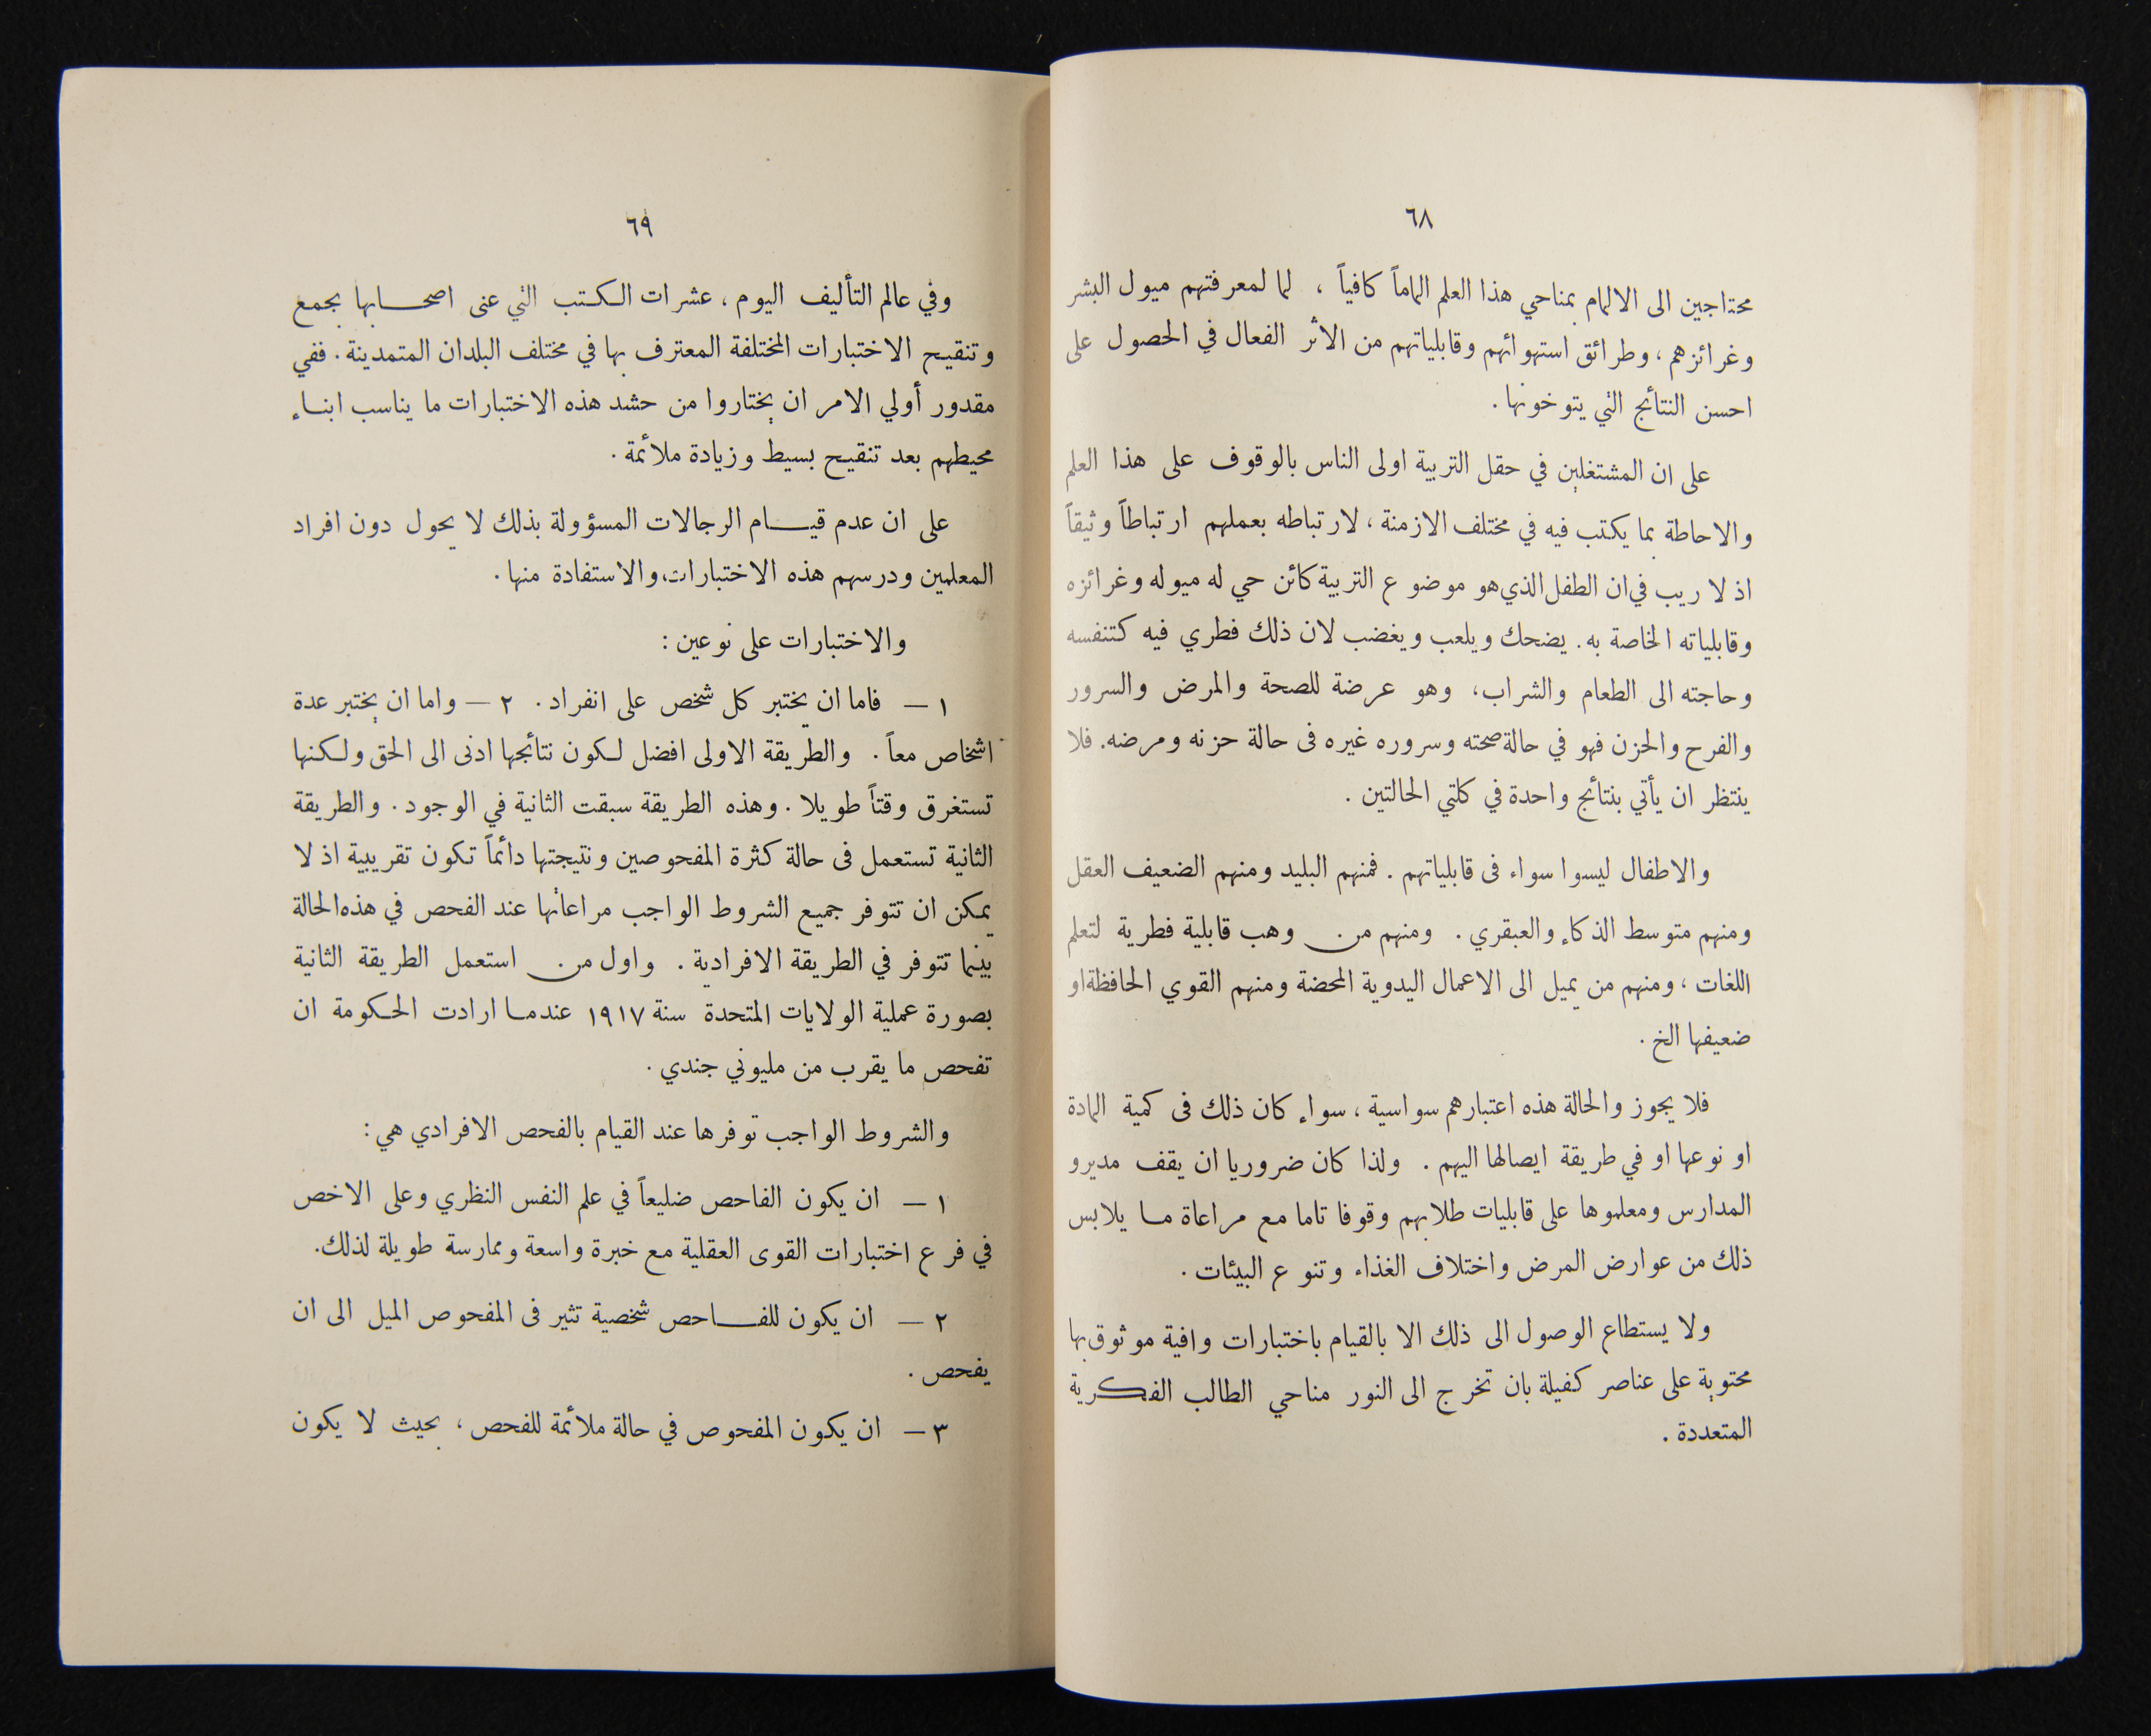 ٦٨
محتاجين الى الالمام بمناحي هذا العلم الماماً كافياً ، لما لمعرفتهم ميول البشر
وغرائزهم ، وطرائق استهوائهم وقابلياتهم من الاثر الفعال في الحصول على
احسن النتائج التي يتوخونها .
على ان المشتغلين في حقل التربية اولى الناس بالوقوف على هذا العلم
والاحاطة بما يكتب فيه في مختلف الازمنة ، لارتباطه بعملهم ارتباطاً وثيقاً
اذ لا ريب في ان الطفل الذي هو موضوع التربية كائن حي له ميوله وغرائزه
وقابلياته الخاصة به . يضحك ويلعب ويغضب لان ذلك فطري فيه كتنفسه
وحاجته الى الطعام والشراب ، وهو عرضة للصحة والمرض والسرور
والفرح والحزن فهو في حالة صحته وسروره غيره فى حالة حزنه ومرضه . فلا
ينتظر ان يأتي بنتائج واحدة في كلتي الحالتين .
والاطفال ليسوا سواء فى قابلياتهم . فمنهم البليد ومنهم الضعيف العقل
ومنهم متوسط الذكاء والعبقري . ومنهم من وهب قابلية فطرية لتعلم
اللغات ، ومنهم من يميل الى الاعمال اليدوية المحضة ومنهم القوي الحافظة او
ضعيفها الخ .
فلا يجوز والحالة هذه اعتبارهم سواسية ، سواء كان ذلك فى كمية المادة
او نوعها او في طريقة ايصالها اليهم . ولذا كان ضروريا ان يقف مديرو
المدارس ومعلموها على قابليات طلابهم وقوفا تاما مع مراعاة ما يلابس
ذلك من عوارض المرض واختلاف الغذاء وتنوع البيئات .
ولا يستطاع الوصول الى ذلك الا بالقيام باختبارات وافية موثوق بها
محتوية على عناصر كفيلة بان تخرج الى النور مناحي الطالب الفكرية
المتعددة .
٦٩
وفي عالم التأليف اليوم ، عشرات الكتب التي عنى اصحابها بجمع
وتنقيح الاختبارات المختلفة المعترف بها في مختلف البلدان المتمدينة . ففي
مقدور أولي الامر ان يختاروا من حشد هذه الاختبارات ما يناسب ابناء
محيطهم بعد تنقيح بسيط وزيادة ملائمة .
على ان عدم قيام الرجالات المسؤولة بذلك لا يحول دون افراد
المعلمين ودرسهم هذه الاختبارات ، والاستفادة منها .
والاختبارات على نوعين :
١ — فاما ان يختبر كل شخص على انفراد . ٢ — واما ان يختبر عدة
اشخاص معاً . والطريقة الاولى افضل لكون نتائجها ادنى الى الحق ولكنها
تستغرق وقتاً طويلا . وهذه الطريقة سبقت الثانية في الوجود . والطريقة
الثانية تستعمل فى حالة كثرة المفحوصين ونتيجتها دائماً تكون تقريبية اذ لا
يمكن ان تتوفر جميع الشروط الواجب مراعاتها عند الفحص في هذه الحالة
بينما تتوفر في الطريقة الافرادية . واول من استعمل الطريقة الثانية
بصورة عملية الولايات المتحدة سنة ١٩١٧ عندما ارادت الحكومة ان
تفحص ما يقرب من مليوني جندي .
والشروط الواجب توفرها عند القيام بالفحص الافرادي هي :
١ — ان يكون الفاحص ضليعاً في علم النفس النظري وعلى الاخص
في فرع اختبارات القوى العقلية مع خبرة واسعة وممارسة طويلة لذلك .
٢ — ان يكون للفاحص شخصية تثير فى المفحوص الميل الى ان
يفحص .
٣ — ان يكون المفحوص في حالة ملائمة للفحص ، بحيث لا يكون